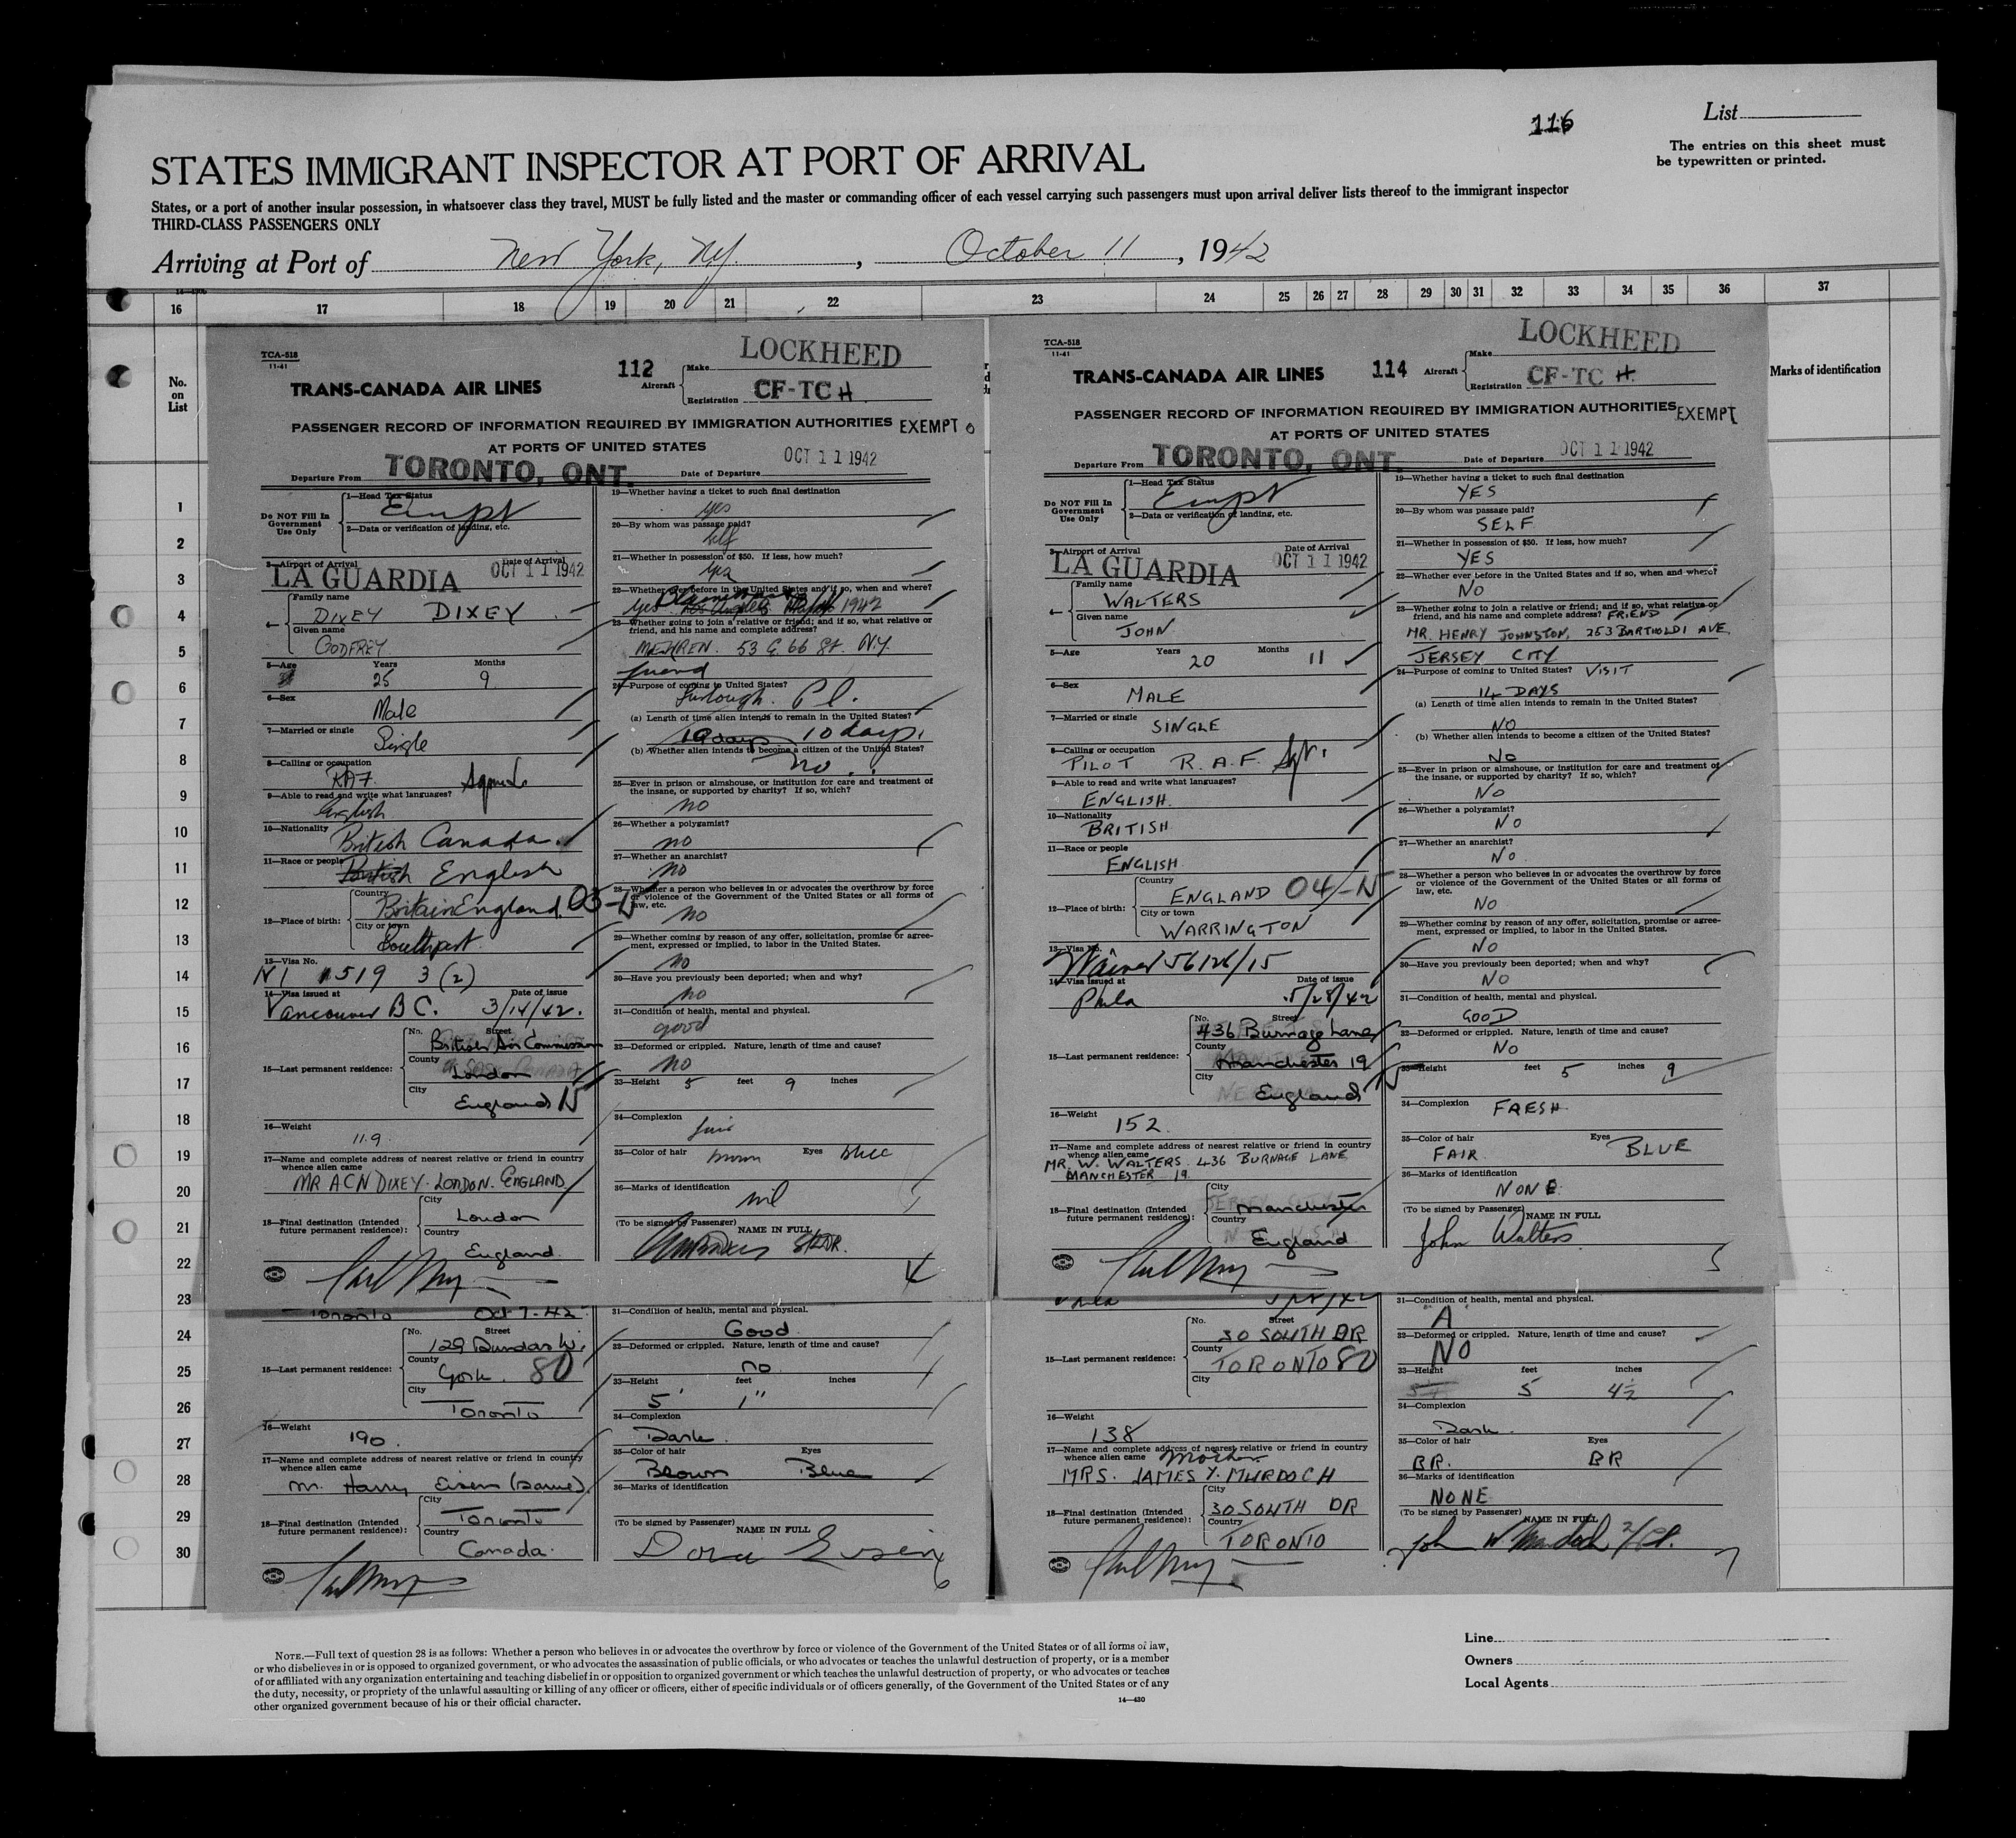 116
List
The entries on this sheet must
be typewritten or printed.
STATES IMMIGRANT INSPECTOR AT PORT OF ARRIVAL
States, or a port of another insular possession, in whatsoever class they travel, MUST be fully listed and the master or commanding officer of each vessel carrying such passengers must upon arrival deliver lists thereof to the immigrant inspector
THIRD-CLASS PASSENGERS ONLY
Arriving at Port of New York, NY. , October 11 , 1942
16 17 18 19 20 21 22 23 24 25 26 27 28 29 30 31 32 33 34 35 36 37
No. on List
Marks of identification
1
2
3
4
5
6
7
8
9
10
11
12
13
14
15
16
17
18
19
20
21
22
23
24
25
26
27
28
29
30
TCA-518
11-41
TRANS-CANADA AIR LINES
112
Aircraft
Make LOCKHEED
Registration CF-TC H
PASSENGER RECORD OF INFORMATION REQUIRED BY IMMIGRATION AUTHORITIES EXEMPT
AT PORTS OF UNITED STATES
Departure From TORONTO, ONT. Date of Departure OCT 11 1942
Do NOT Fill In Government Use Only
1—Head Tax Status
Exempt
2—Data or verification of landing, etc.
3—Airport of Arrival Date of Arrival
LA GUARDIA OCT 11 1942
4— Family name
DIXEY DIXEY
Given name
GODFREY
5—Age Years Months
25 9
6—Sex
Male
7—Married or single
Single
8—Calling or occupation
RAF
9—Able to read and write what languages?
English
10—Nationality
British Canada.
11—Race or people
British English
12—Place of birth: Country
Britain England 03-N
City or town
Southport
13—Visa No.
1519 3(2)
14—Visa issued at Date of issue
Vancouver BC. 3/14/42.
15—Last permanent residence: No. Street
British Air Commission
County
London
City
England N
16—Weight
11.9
17—Name and complete address of nearest relative or friend in country
whence alien came
MR ACN DIXEY. LONDON. ENGLAND
18—Final destination (Intended future permanent residence): City
London
Country
England.
19—Whether having a ticket to such final destination
yes
20—By whom was passage paid?
Self
21—Whether in possession of $50. If less, how much?
Yes
22—Whether ever before in the United States and if so, when and where?
Yes Los Angeles March 1942
23—Whether going to join a relative or friend; and if so, what relative or
friend, and his name and complete address?
MEHREN. 53 E. 66 St. N.Y.
friend
24—Purpose of coming to United States?
Furlough.
(a) Length of time alien intends to remain in the United States?
10 days 10 days.
(b) Whether alien intends to become a citizen of the United States?
no
25—Ever in prison or almshouse, or institution for care and treatment of
the insane, or supported by charity? If so, which?
no
26—Whether a polygamist?
no
27—Whether an anarchist?
no
28—Whether a person who believes in or advocates the overthrow by force
or violence of the Government of the United States or all forms of
law, etc.
no
29—Whether coming by reason of any offer, solicitation, promise or agree-
ment, expressed or implied, to labor in the United States.
no
30—Have you previously been deported; when and why?
no
31—Condition of health, mental and physical.
good
32—Deformed or crippled. Nature, length of time and cause?
no
33—Height 5 feet 9 inches
34—Complexion
35—Color of hair brown Eyes blue
36—Marks of identification
nil
(To be signed by Passenger) NAME IN FULL
4
TCA-518
11-41
TRANS-CANADA AIR LINES
114
Aircraft
Make LOCKHEED
Registration CF-TC H
PASSENGER RECORD OF INFORMATION REQUIRED BY IMMIGRATION AUTHORITIES EXEMPT
AT PORTS OF UNITED STATES
Departure From TORONTO, ONT. Date of Departure OCT 11 1942
Do NOT Fill In Government Use Only
1—Head Tax Status
Exempt
2—Data or verification of landing, etc.
3—Airport of Arrival Date of Arrival
LA GUARDIA OCT 11 1942
4— Family name
WALTERS
Given name
JOHN
5—Age Years 20 Months 11
6—Sex
MALE
7—Married or single
SINGLE
8—Calling or occupation
PILOT R.A.F. Sgt.
9—Able to read and write what languages?
ENGLISH
10—Nationality
BRITISH
11—Race or people
ENGLISH
12—Place of birth: Country
ENGLAND 04-N
City or town
WARRINGTON
13—Visa No.
Waiver 56126/15
14—Visa issued at Date of issue
Phila 5/28/42
15—Last permanent residence: No. Street
436 Burnage Lane
County
Manchester 19
City
England
16—Weight
152
17—Name and complete address of nearest relative or friend in country
whence alien came
MR. W. WALTERS 436 BURNAGE LANE
MANCHESTER 19
18—Final destination (Intended future permanent residence): City
Manchester
Country
England
19—Whether having a ticket to such final destination
YES
20—By whom was passage paid?
SELF
21—Whether in possession of $50. If less, how much?
YES
22—Whether ever before in the United States and if so, when and where?
NO
23—Whether going to join a relative or friend; and if so, what relative or
friend, and his name and complete address? FRIEND
MR. HENRY JOHNSTON, 253 BARTHOLDI AVE.
JERSEY CITY
24—Purpose of coming to United States? VISIT
14 DAYS
(a) Length of time alien intends to remain in the United States?
NO
(b) Whether alien intends to become a citizen of the United States?
NO
25—Ever in prison or almshouse, or institution for care and treatment of
the insane, or supported by charity? If so, which?
NO
26—Whether a polygamist?
NO
27—Whether an anarchist?
NO
28—Whether a person who believes in or advocates the overthrow by force
or violence of the Government of the United States or all forms of
law, etc.
NO
29—Whether coming by reason of any offer, solicitation, promise or agree-
ment, expressed or implied, to labor in the United States.
NO
30—Have you previously been deported; when and why?
NO
31—Condition of health, mental and physical.
GOOD
32—Deformed or crippled. Nature, length of time and cause?
NO
33—Height feet 5 inches 9
34—Complexion
FRESH
35—Color of hair Eyes
FAIR BLUE
36—Marks of identification
NONE
(To be signed by Passenger) NAME IN FULL
John Walters
5
Toronto Oct 7-42
15—Last permanent residence: No. Street
129 Dundas W.
County
York. 80
City
Toronto
16—Weight
190
17—Name and complete address of nearest relative or friend in country
whence alien came
Mr. Harry Eisen (same)
18—Final destination (Intended future permanent residence): City
Toronto
Country
Canada.
31—Condition of health, mental and physical.
Good
32—Deformed or crippled. Nature, length of time and cause?
no
33—Height feet inches
5' 1"
34—Complexion
Dark
35—Color of hair Eyes
Brown Blue
36—Marks of identification
(To be signed by Passenger) NAME IN FULL
Dora Eisen
6
15—Last permanent residence: No. Street
30 SOUTH DR
County
TORONTO 80
City
16—Weight
138
17—Name and complete address of nearest relative or friend in country
whence alien came Mother
MRS. JAMES Y. MURDOCH
18—Final destination (Intended future permanent residence): City
30 SOUTH DR
Country
TORONTO
31—Condition of health, mental and physical.
"A"
32—Deformed or crippled. Nature, length of time and cause?
NO
33—Height feet inches
5 4½
34—Complexion
Dark
35—Color of hair Eyes
BR. BR
36—Marks of identification
NONE
(To be signed by Passenger) NAME IN FULL
John W. Murdoch
7
NOTE.—Full text of question 28 is as follows: Whether a person who believes in or advocates the overthrow by force or violence of the Government of the United States or of all forms of law,
or who disbelieves in or is opposed to organized government, or who advocates the assassination of public officials, or who advocates or teaches the unlawful destruction of property, or is a member
of or affiliated with any organization entertaining and teaching disbelief in or opposition to organized government or which teaches the unlawful destruction of property, or who advocates or teaches
the duty, necessity, or propriety of the unlawful assaulting or killing of any officer or officers, either of specific individuals or of officers generally, of the Government of the United States or of any
other organized government because of his or their official character.
14—430
Line
Owners
Local Agents